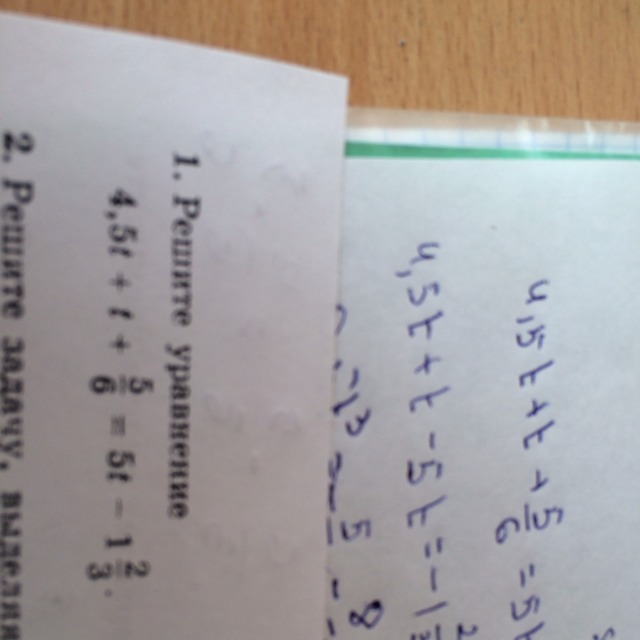 1. Решите уравнение
4,5t + t + 5/6 = 5t − 1 2/3.
2. Решите задачу, выделив
4,5t + t + 5/6 = 5t
4,5t + t − 5t = −1